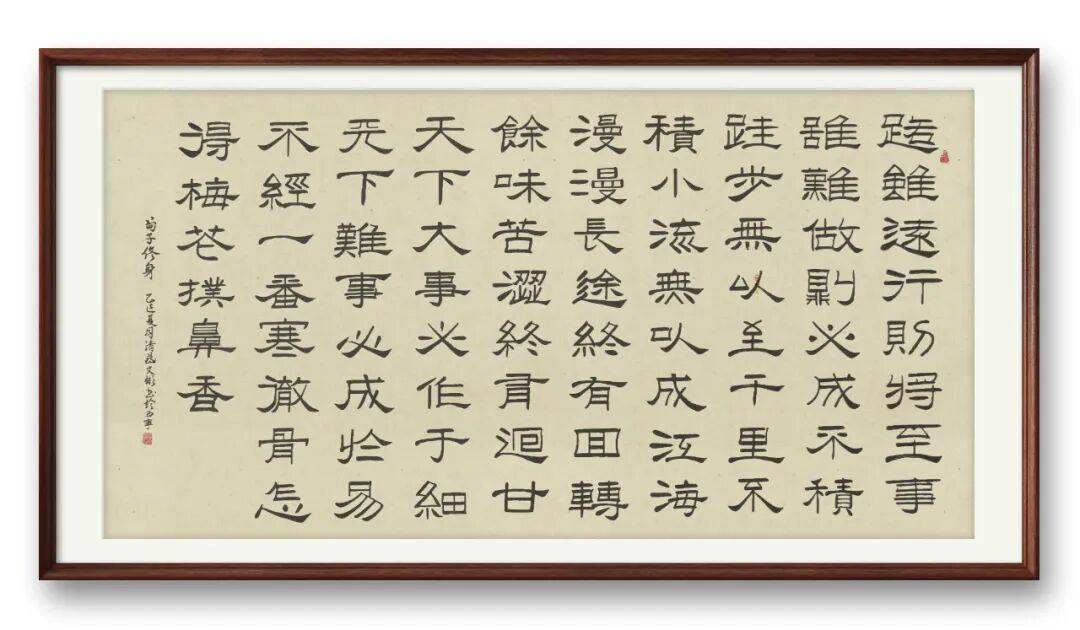 路雖遠行則將至事
雖難做則必成不積
跬步無以至千里不
積小流無以成江海
漫漫長途終有回轉
餘味苦澀終有迴甘
天下大事必作于細
天下難事必成於易
不經一番寒徹骨怎
得梅花撲鼻香
荀子修身 乙巳夏月